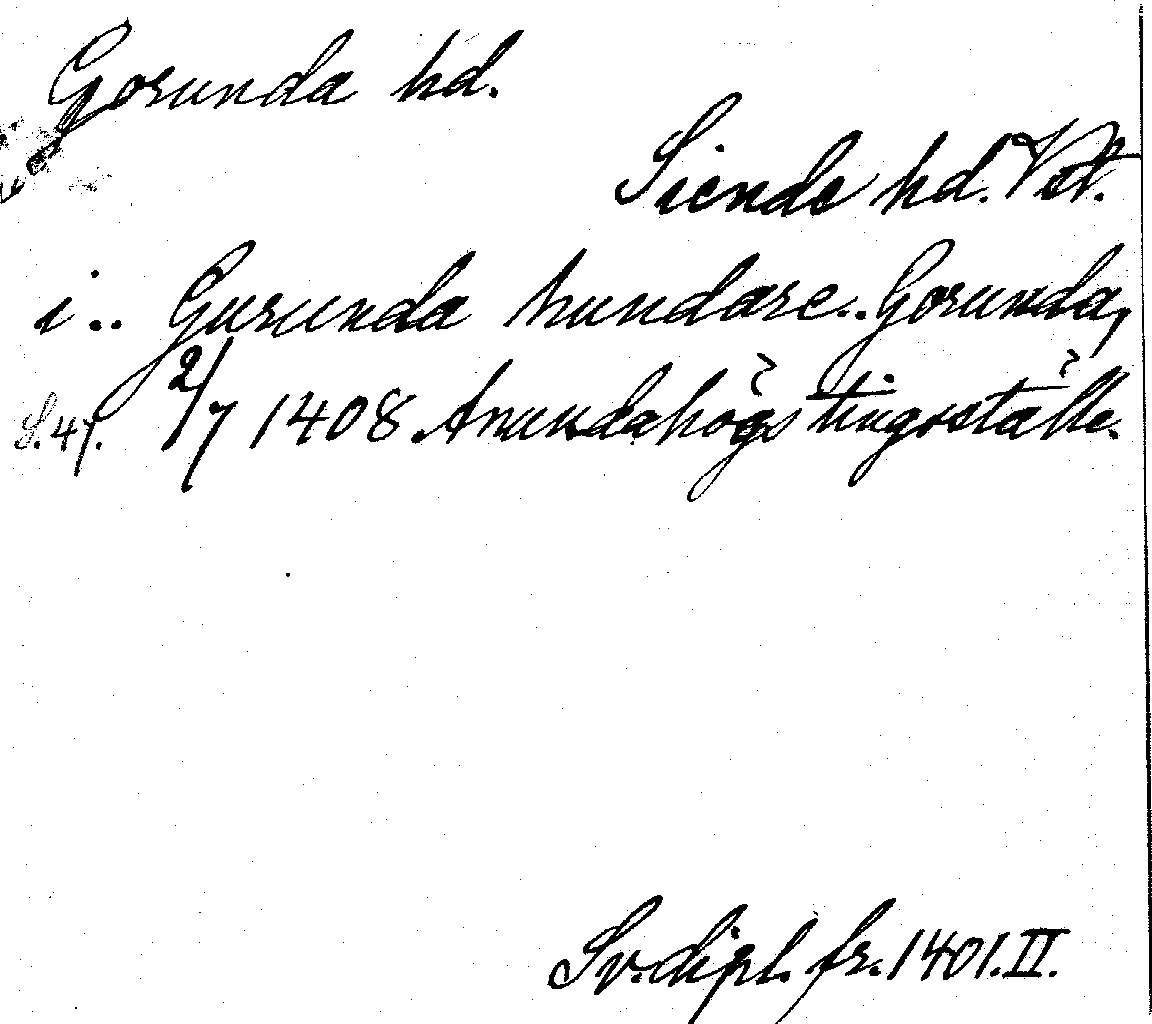 Gorunda hd.
Siende hd. Vst.
i .. Gurunda hundare .. Gorunda,
S. 47. 2/7 1408. Anundahögs tingsställe.
Sv. dipl. fr. 1401. II.